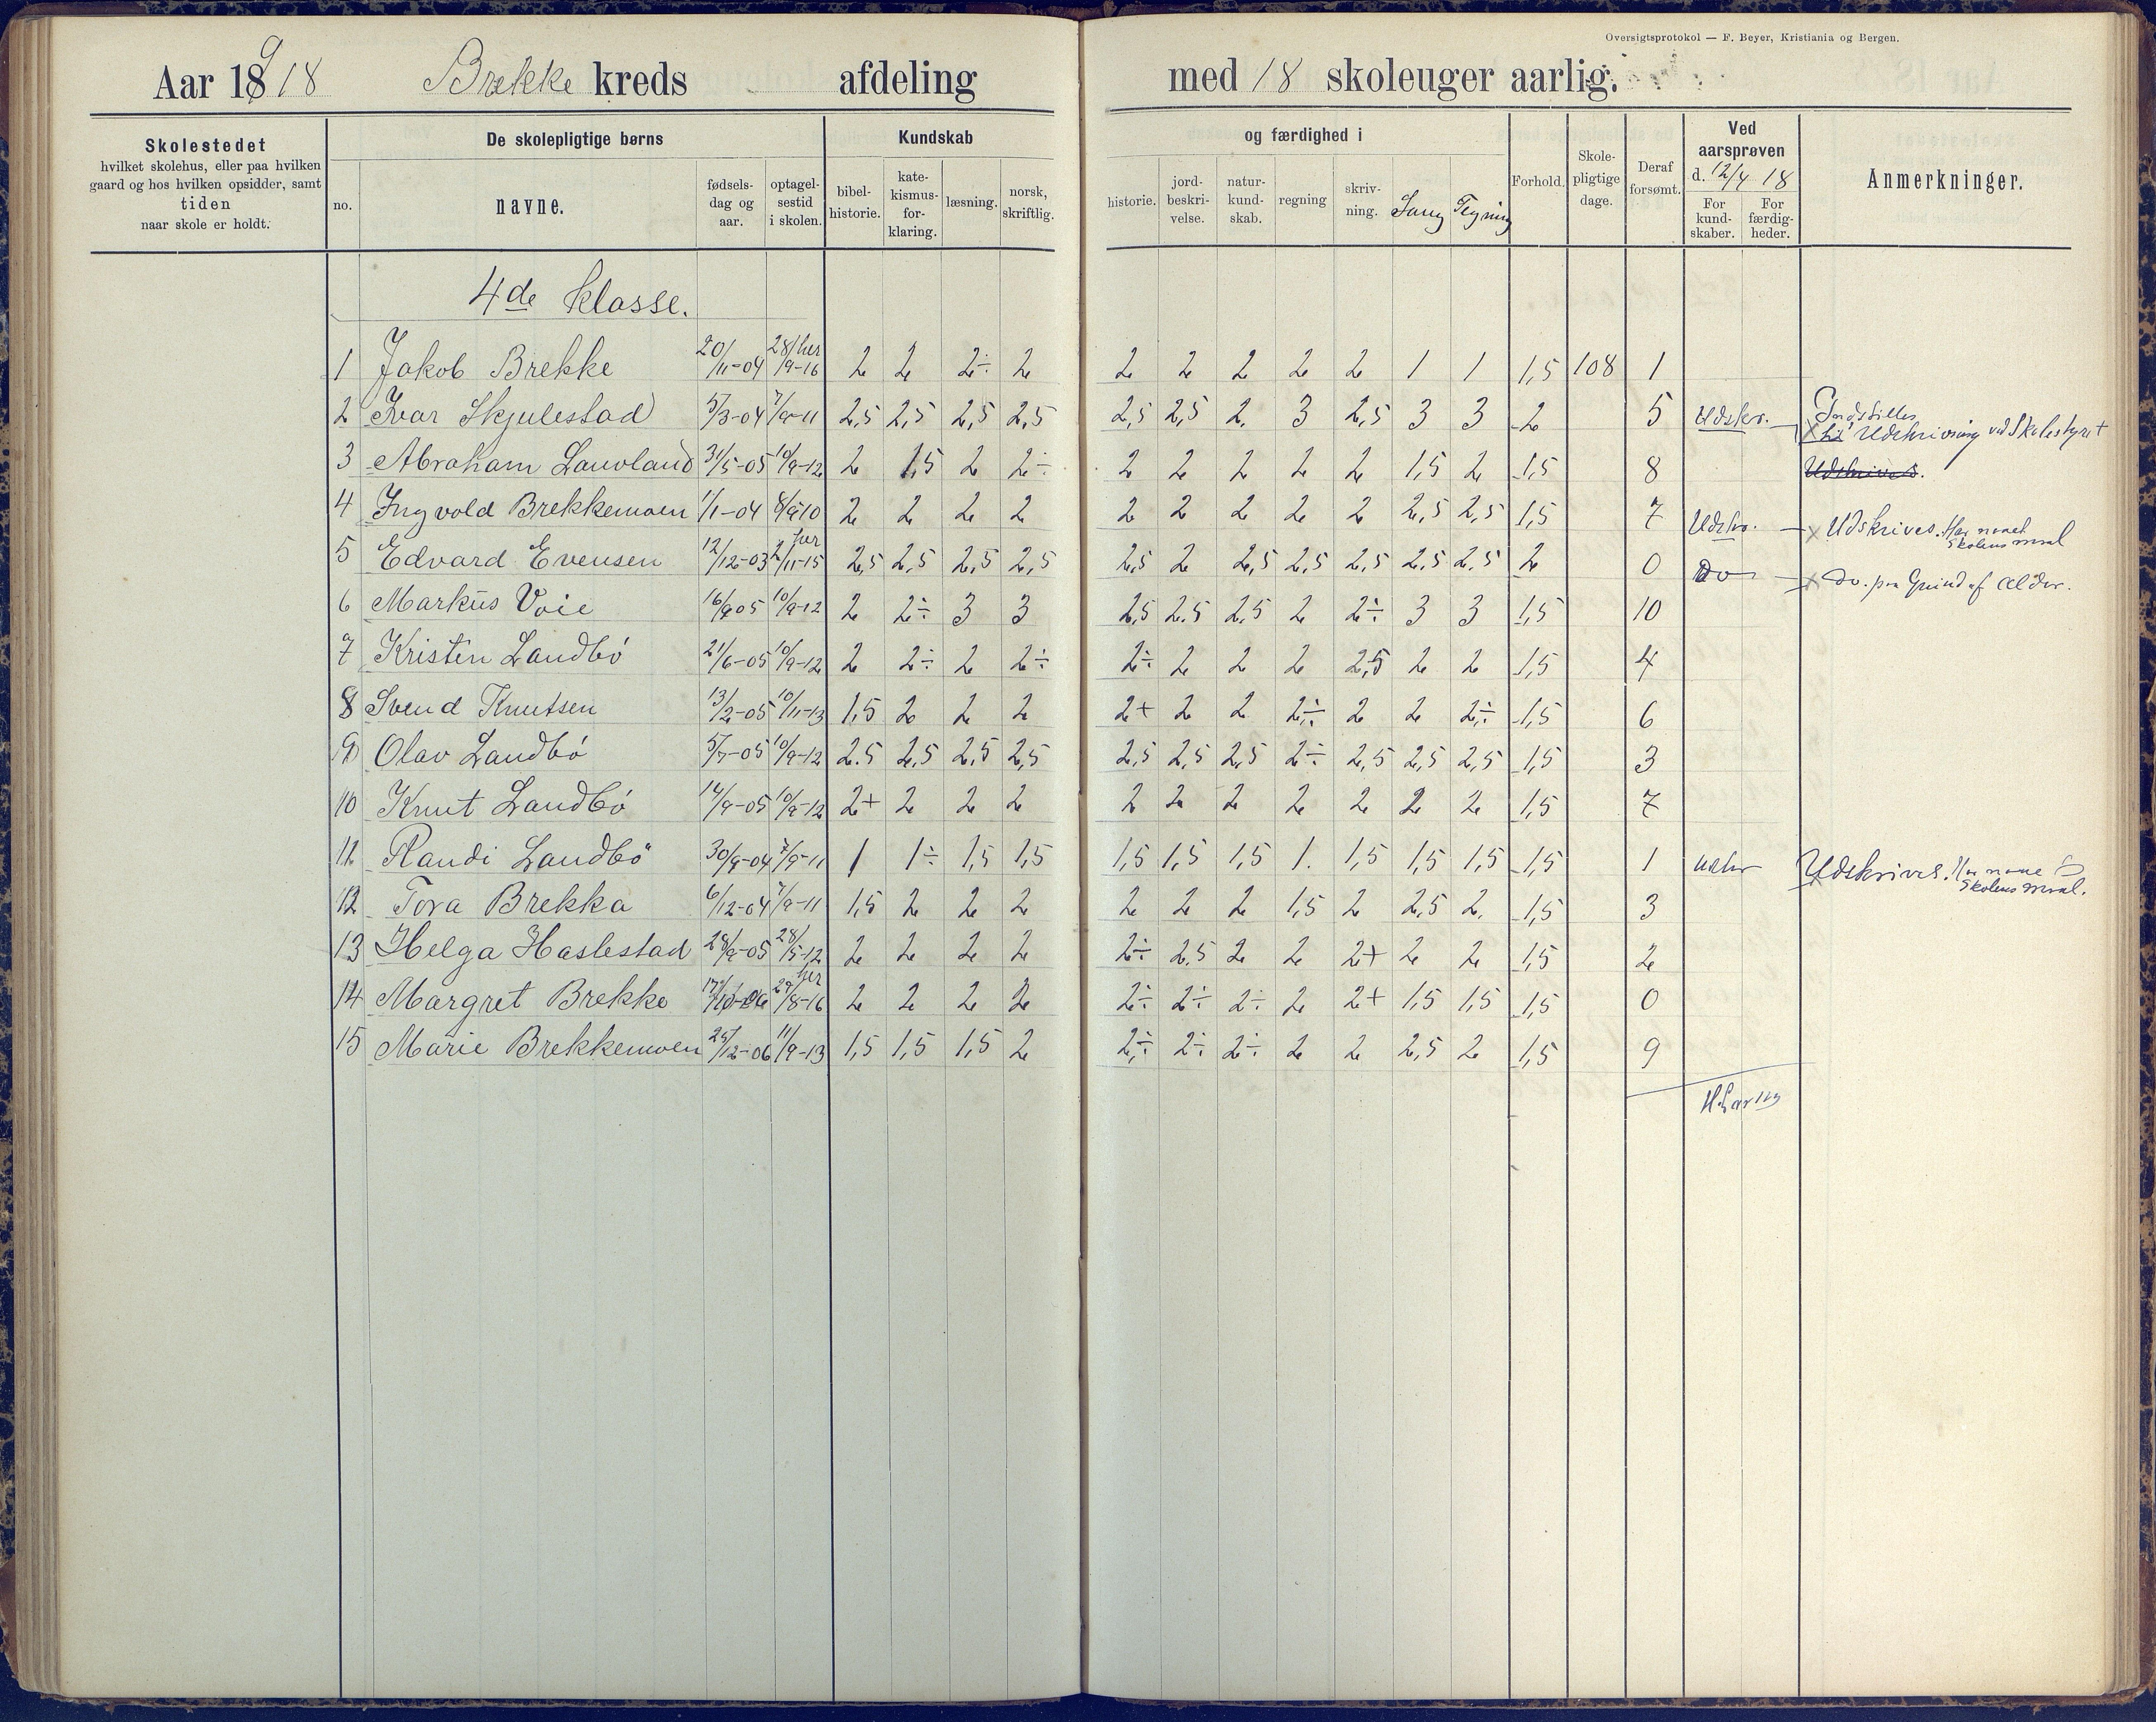 Oversigtsprotokol — F. Beyer, Kristiania og Bergen.
Aar 1918 Brekke kreds afdeling med 18 skoleuger aarlig.
Skolestedet
hvilket skolehus, eller paa hvilken
gaard og hos hvilken opsidder, samt
tiden
naar skole er holdt.
De skolepligtige børns
no.
navne.
fødsels-
dag og
aar.
optagel-
sestid
i skolen.
Kundskab
bibel-
historie.
kate-
kismus-
for-
klaring.
læsning.
norsk,
skriftlig.
og færdighed i
historie.
jord-
beskri-
velse.
natur-
kund-
skab.
regning
skriv-
ning.
Sang
Tegning
Forhold.
Skole-
pligtige
dage.
Deraf
forsømt.
Ved
aarsprøven
d. 12/4 18
For
kund-
skaber.
For
færdig-
heder.
Anmerkninger.
4de klasse.
1 Jakob Brekke 20/11-04 28/9-16 her 2 2 2÷ 2 2 2 2 2 2 1 1 1,5 108 1
2 Ivar Skjulestad 5/3-04 7/9-11 2,5 2,5 2,5 2,5 2,5 2,5 2. 3 2,5 3 3 2 5 Udskr. Indstilles
til Udskrivning ved Skolestyret
3 Abraham Lauvland 31/5-05 10/9-12 2 1,5 2 2÷ 2 2 2 2 2 1,5 2 1,5 8 Udskrives.
4 Ingvold Brekkemoen 1/1-04 8/9-10 2 2 2 2 2 2 2 2 2 2,5 2,5 1,5 7 Udskr. Udskrives. Har naaet
Skolens maal
5 Edvard Evensen 12/12-03 2/11-15 her 2,5 2,5 2,5 2,5 2,5 2 2,5 2,5 2,5 2,5 2,5 2 0 Do Do. paa Grund af Alder.
6 Markus Voie 16/9 05 10/9-12 2 2÷ 3 3 2,5 2.5 2,5 2 2÷ 3 3 1,5 10
7 Kristen Landbö 21/6-05 10/9-12 2 2÷ 2 2÷ 2÷ 2 2 2 2,5 2 2 1,5 4
8 Svend Knutsen 13/2-05 10/11-13 1,5 2 2 2 2+ 2 2 2÷ 2 2 2÷ 1,5 6
9 Olav Landbö 5/7-05 10/9-12 2.5 2,5 2,5 2,5 2,5 2,5 2,5 2÷ 2,5 2,5 2,5 1,5 3
10 Knut Landbö 14/9-05 10/9-12 2+ 2 2 2 2 2 2 2 2 2 2 1,5 7
11 Randi Landbö 30/9-04 7/9-11 1 1÷ 1,5 1,5 1,5 1,5 1,5 1. 1,5 1,5 1,5 1,5 1 Udskr Udskrives. Har naaet
Skolens maal.
12 Tora Brekka 6/12-04 7/9-11 1,5 2 2 2 2 2 2 1,5 2 2,5 2. 1,5 3
13 Helga Haslestad 28/9-05 28/5-12 2 2 2 2 2÷ 2.5 2 2 2+ 2 2 1,5 2
14 Margret Brekke 17/10-06 29/8-16 her 2 2 2 2 2÷ 2÷ 2÷ 2 2+ 1,5 1,5 1,5 0
15 Marie Brekkemoen 25/12-06 11/9-13 1,5 1,5 1,5 2 2÷ 2÷ 2÷ 2 2 2,5 2 1,5 9